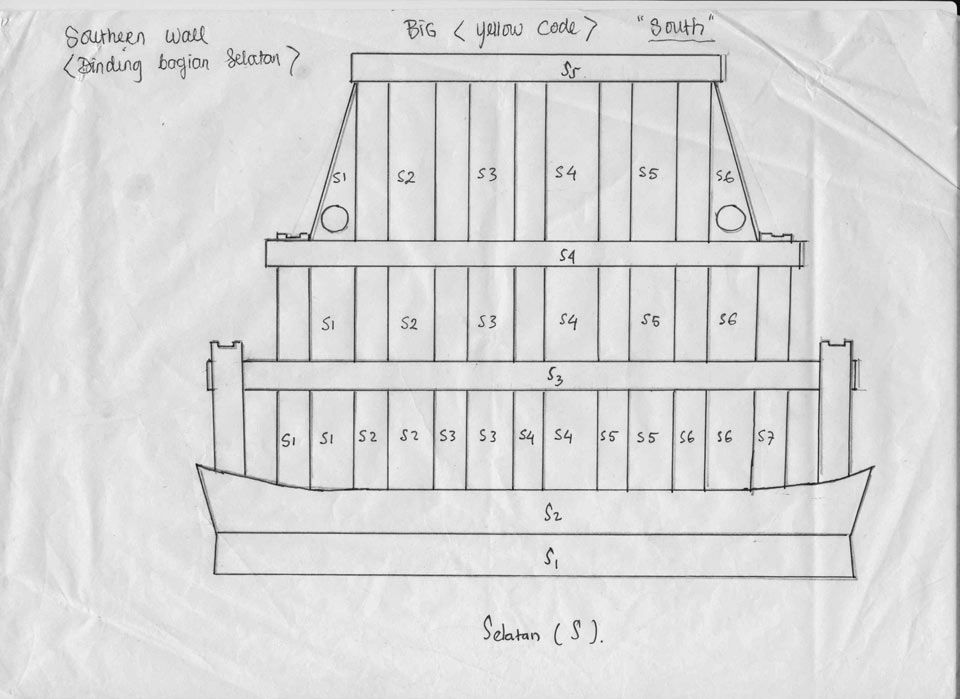 Southern Wall
< Dinding bagian Selatan >
BIG < yellow code > "South"
S5
S1 S2 S3 S4 S5 S6
S4
S1 S2 S3 S4 S5 S6
S3
S1 S1 S2 S2 S3 S3 S4 S4 S5 S5 S6 S6 S7
S2
S1
Selatan (S).